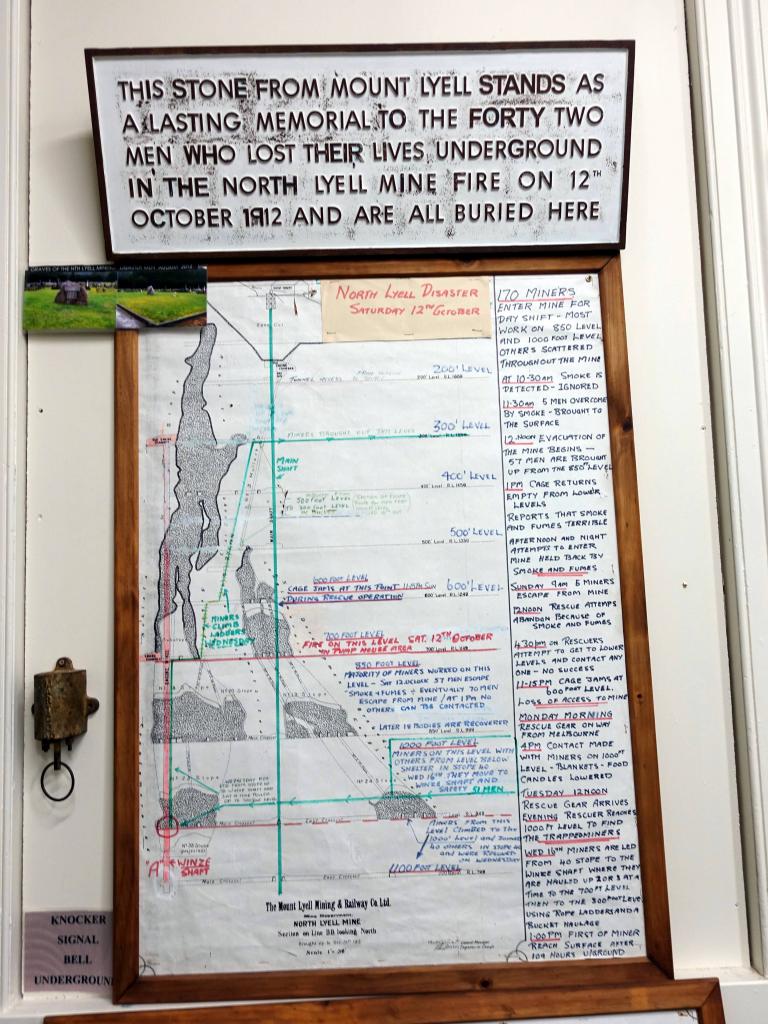 THIS STONE FROM MOUNT LYELL STANDS AS
A LASTING MEMORIAL TO THE FORTY TWO
MEN WHO LOST THEIR LIVES UNDERGROUND
IN THE NORTH LYELL MINE FIRE ON 12TH
OCTOBER 1912 AND ARE ALL BURIED HERE
GRAVES OF THE NTH LYELL
NORTH LYELL DISASTER
SATURDAY 12TH OCTOBER
200' LEVEL
300' LEVEL
MINERS BROUGHT OUT THIS LEVEL
MAIN
SHAFT
400' LEVEL
500 FOOT LEVEL
TO 300 FOOT LEVEL
500' LEVEL
600 FOOT LEVEL
CAGE JAMS AT THIS POINT 11-15PM SUN
DURING RESCUE OPERATION
600' LEVEL
MINERS
CLIMB
LADDERS
WEDNESDAY
700 FOOT LEVEL
FIRE ON THIS LEVEL SAT. 12TH OCTOBER
IN PUMP HOUSE AREA
850 FOOT LEVEL
MAJORITY OF MINERS WORKED ON THIS
LEVEL - SAT 12.OCLOCK 57 MEN ESCAPE
SMOKE & FUMES - EVENTUALLY 70 MEN
ESCAPE FROM MINE / AT 1PM NO
OTHERS CAN BE CONTACTED
LATER 18 BODIES ARE RECOVERED
1000 FOOT LEVEL
MINERS ON THIS LEVEL WITH
OTHERS FROM LEVEL BELOW
SHELTER IN STOPE 40
WED 16TH THEY MOVE TO
WINZE SHAFT AND
SAFETY 51 MEN
MINERS FROM THIS
LEVEL CLIMBED TO THE
1000' LEVEL AND JOINED
40 OTHERS IN STOPE
AND WERE RESCUED
ON WEDNESDAY
1100 FOOT LEVEL
"A" WINZE
SHAFT
The Mount Lyell Mining & Railway Co. Ltd.
NORTH LYELL MINE
Section on Line BB looking North
170 MINERS
ENTER MINE FOR
DAY SHIFT - MOST
WORK ON 850 LEVEL
AND 1000 FOOT LEVEL
OTHERS SCATTERED
THROUGHOUT THE MINE
AT 10-30AM SMOKE IS
DETECTED - IGNORED
11-30AM 5 MEN OVERCOME
BY SMOKE - BROUGHT TO
THE SURFACE
12-NOON EVACUATION OF
THE MINE BEGINS -
57 MEN ARE BROUGHT
UP FROM THE 850' LEVEL
1PM CAGE RETURNS
EMPTY FROM LOWER
LEVELS
REPORTS THAT SMOKE
AND FUMES TERRIBLE
AFTERNOON AND NIGHT
ATTEMPTS TO ENTER
MINE HELD BACK BY
SMOKE AND FUMES
SUNDAY 9AM 5 MINERS
ESCAPE FROM MINE
12NOON RESCUE ATTEMPS
ABANDON BECAUSE OF
SMOKE AND FUMES
4.30pm ON RESCUERS
ATTEMPT TO GET TO LOWER
LEVELS AND CONTACT ANY
ONE - NO SUCCESS
11-15PM CAGE JAMS AT
600 FOOT LEVEL.
LOSS OF ACCESS TO MINE
MONDAY MORNING
RESCUE GEAR ON WAY
FROM MELBOURNE
4PM CONTACT MADE
WITH MINERS ON 1000FT
LEVEL - BLANKETS - FOOD
CANDLES LOWERED
TUESDAY 12NOON
RESCUE GEAR ARRIVES
EVENING RESCUER REACHES
1000FT LEVEL TO FIND
THE TRAPPED MINERS
WED 16TH MINERS ARE LED
FROM 40 STOPE TO THE
WINZE SHAFT WHERE THEY
ARE HAULED UP 2 OR 3 AT A
TIME TO THE 700FT LEVEL
THEN TO THE 300 FOOT LEVEL
USING ROPE LADDERS AND A
BUCKET HAULAGE
1-00PM FIRST OF MINER
REACH SURFACE AFTER
104 HOURS U/GROUND
KNOCKER
SIGNAL
BELL
UNDERGROUND